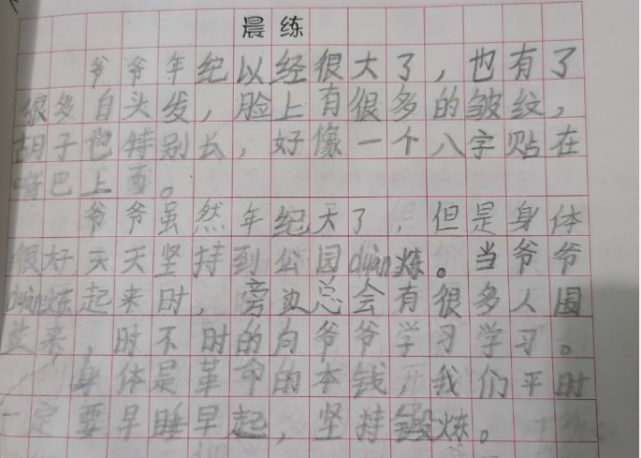 晨练
爷爷年纪以经很大了，也有了
很多白头发，脸上有很多的皱纹，
胡子也特别长，好像一个八字贴在
嘴巴上面。
爷爷虽然年纪大了，但是身体
很好天天坚持到公园duàn炼。当爷爷
duàn炼起来时，旁边总会有很多人围
过来，时不时的向爷爷学习学习。
身体是革命的本钱，我们平时
一定要早睡早起，坚持锻炼。